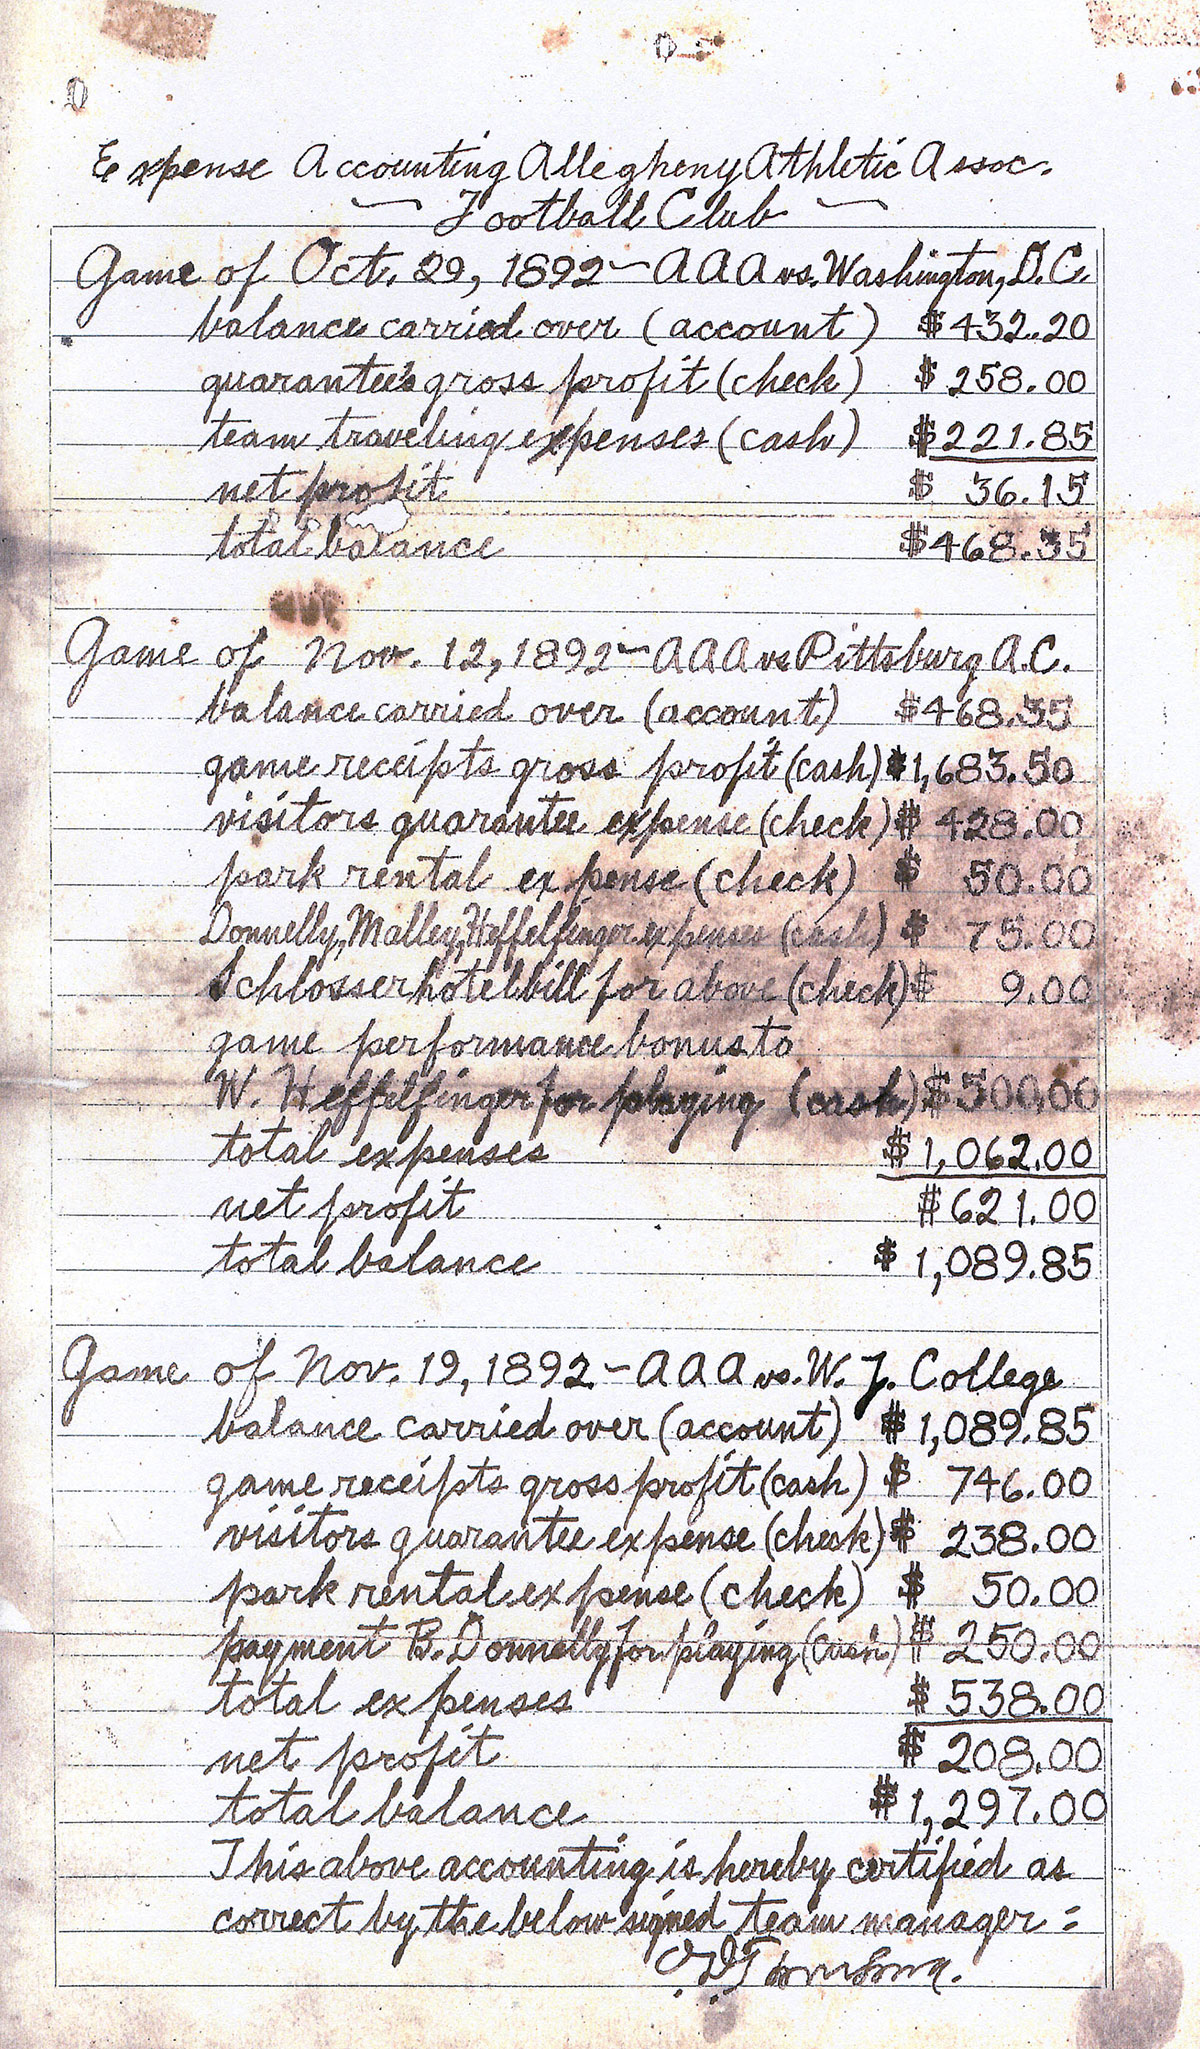 Expense Accounting Allegheny Athletic Assoc.
Football Club
Game of Oct. 29, 1892 - AAA vs. Washington, D.C.
balance carried over (account) $432.20
guarantee's gross profit (check) $ 258.00
team traveling expenses (cash) $221.85
net profit $ 36.15
total balance $468.35
Game of Nov. 12, 1892 - AAA vs Pittsburg A.C.
balance carried over (account) $468.35
game receipts gross profit (cash) $1,683.50
visitors guarantee expense (check) $ 428.00
park rental expense (check) $ 50.00
Donnelly, Malley, Heffelfinger expenses (cash) $ 75.00
Schlosser hotel bill for above (check) $ 9.00
game performance bonus to
W. Heffelfinger for playing (cash) $500.00
total expenses $1,062.00
net profit $621.00
total balance $ 1,089.85
Game of Nov. 19, 1892 - AAA vs. W. J. College
balance carried over (account) $1,089.85
game receipts gross profit (cash) $ 746.00
visitors guarantee expense (check) $ 238.00
park rental expense (check) $ 50.00
payment B. Donnelly for playing (cash) $ 250.00
total expenses $ 538.00
net profit $ 208.00
total balance $1,297.00
This above accounting is hereby certified as
correct by the below signed team manager =